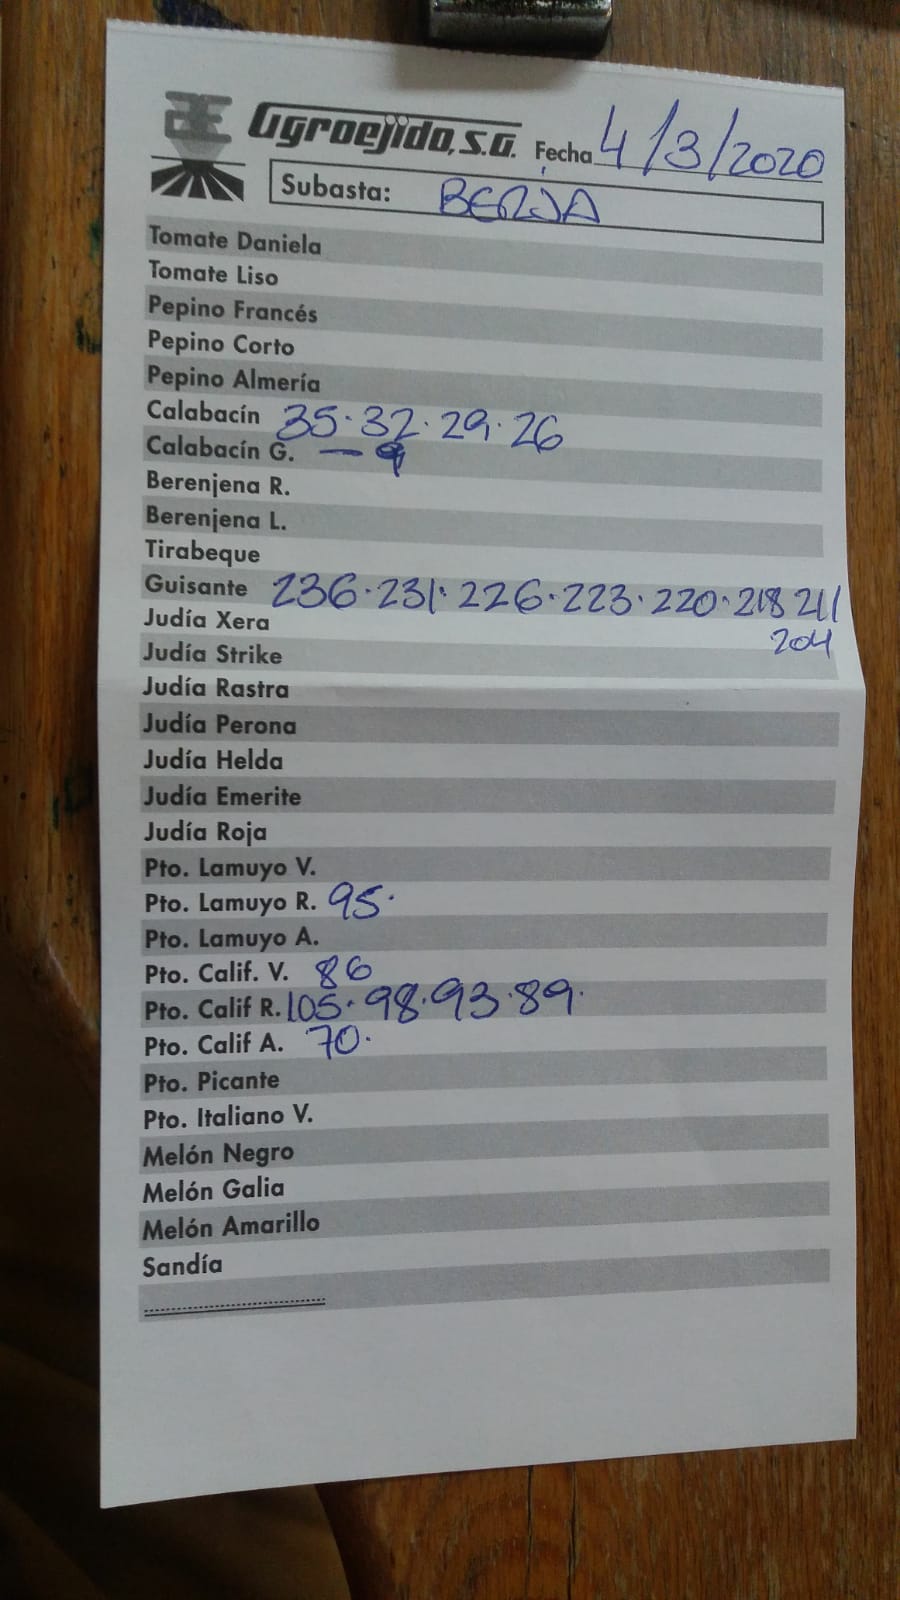 Agroejido, S.A. Fecha 4/3/2020
Subasta: BERJA
Tomate Daniela
Tomate Liso
Pepino Francés
Pepino Corto
Pepino Almería
Calabacín 35·32·29·26
Calabacín G. — 9
Berenjena R.
Berenjena L.
Tirabeque
Guisante 236·231·226·223·220·218 211
204
Judía Xera
Judía Strike
Judía Rastra
Judía Perona
Judía Helda
Judía Emerite
Judía Roja
Pto. Lamuyo V.
Pto. Lamuyo R. 95.
Pto. Lamuyo A.
Pto. Calif. V. 86
Pto. Calif R. 105·98·93·89.
Pto. Calif A. 70.
Pto. Picante
Pto. Italiano V.
Melón Negro
Melón Galia
Melón Amarillo
Sandía